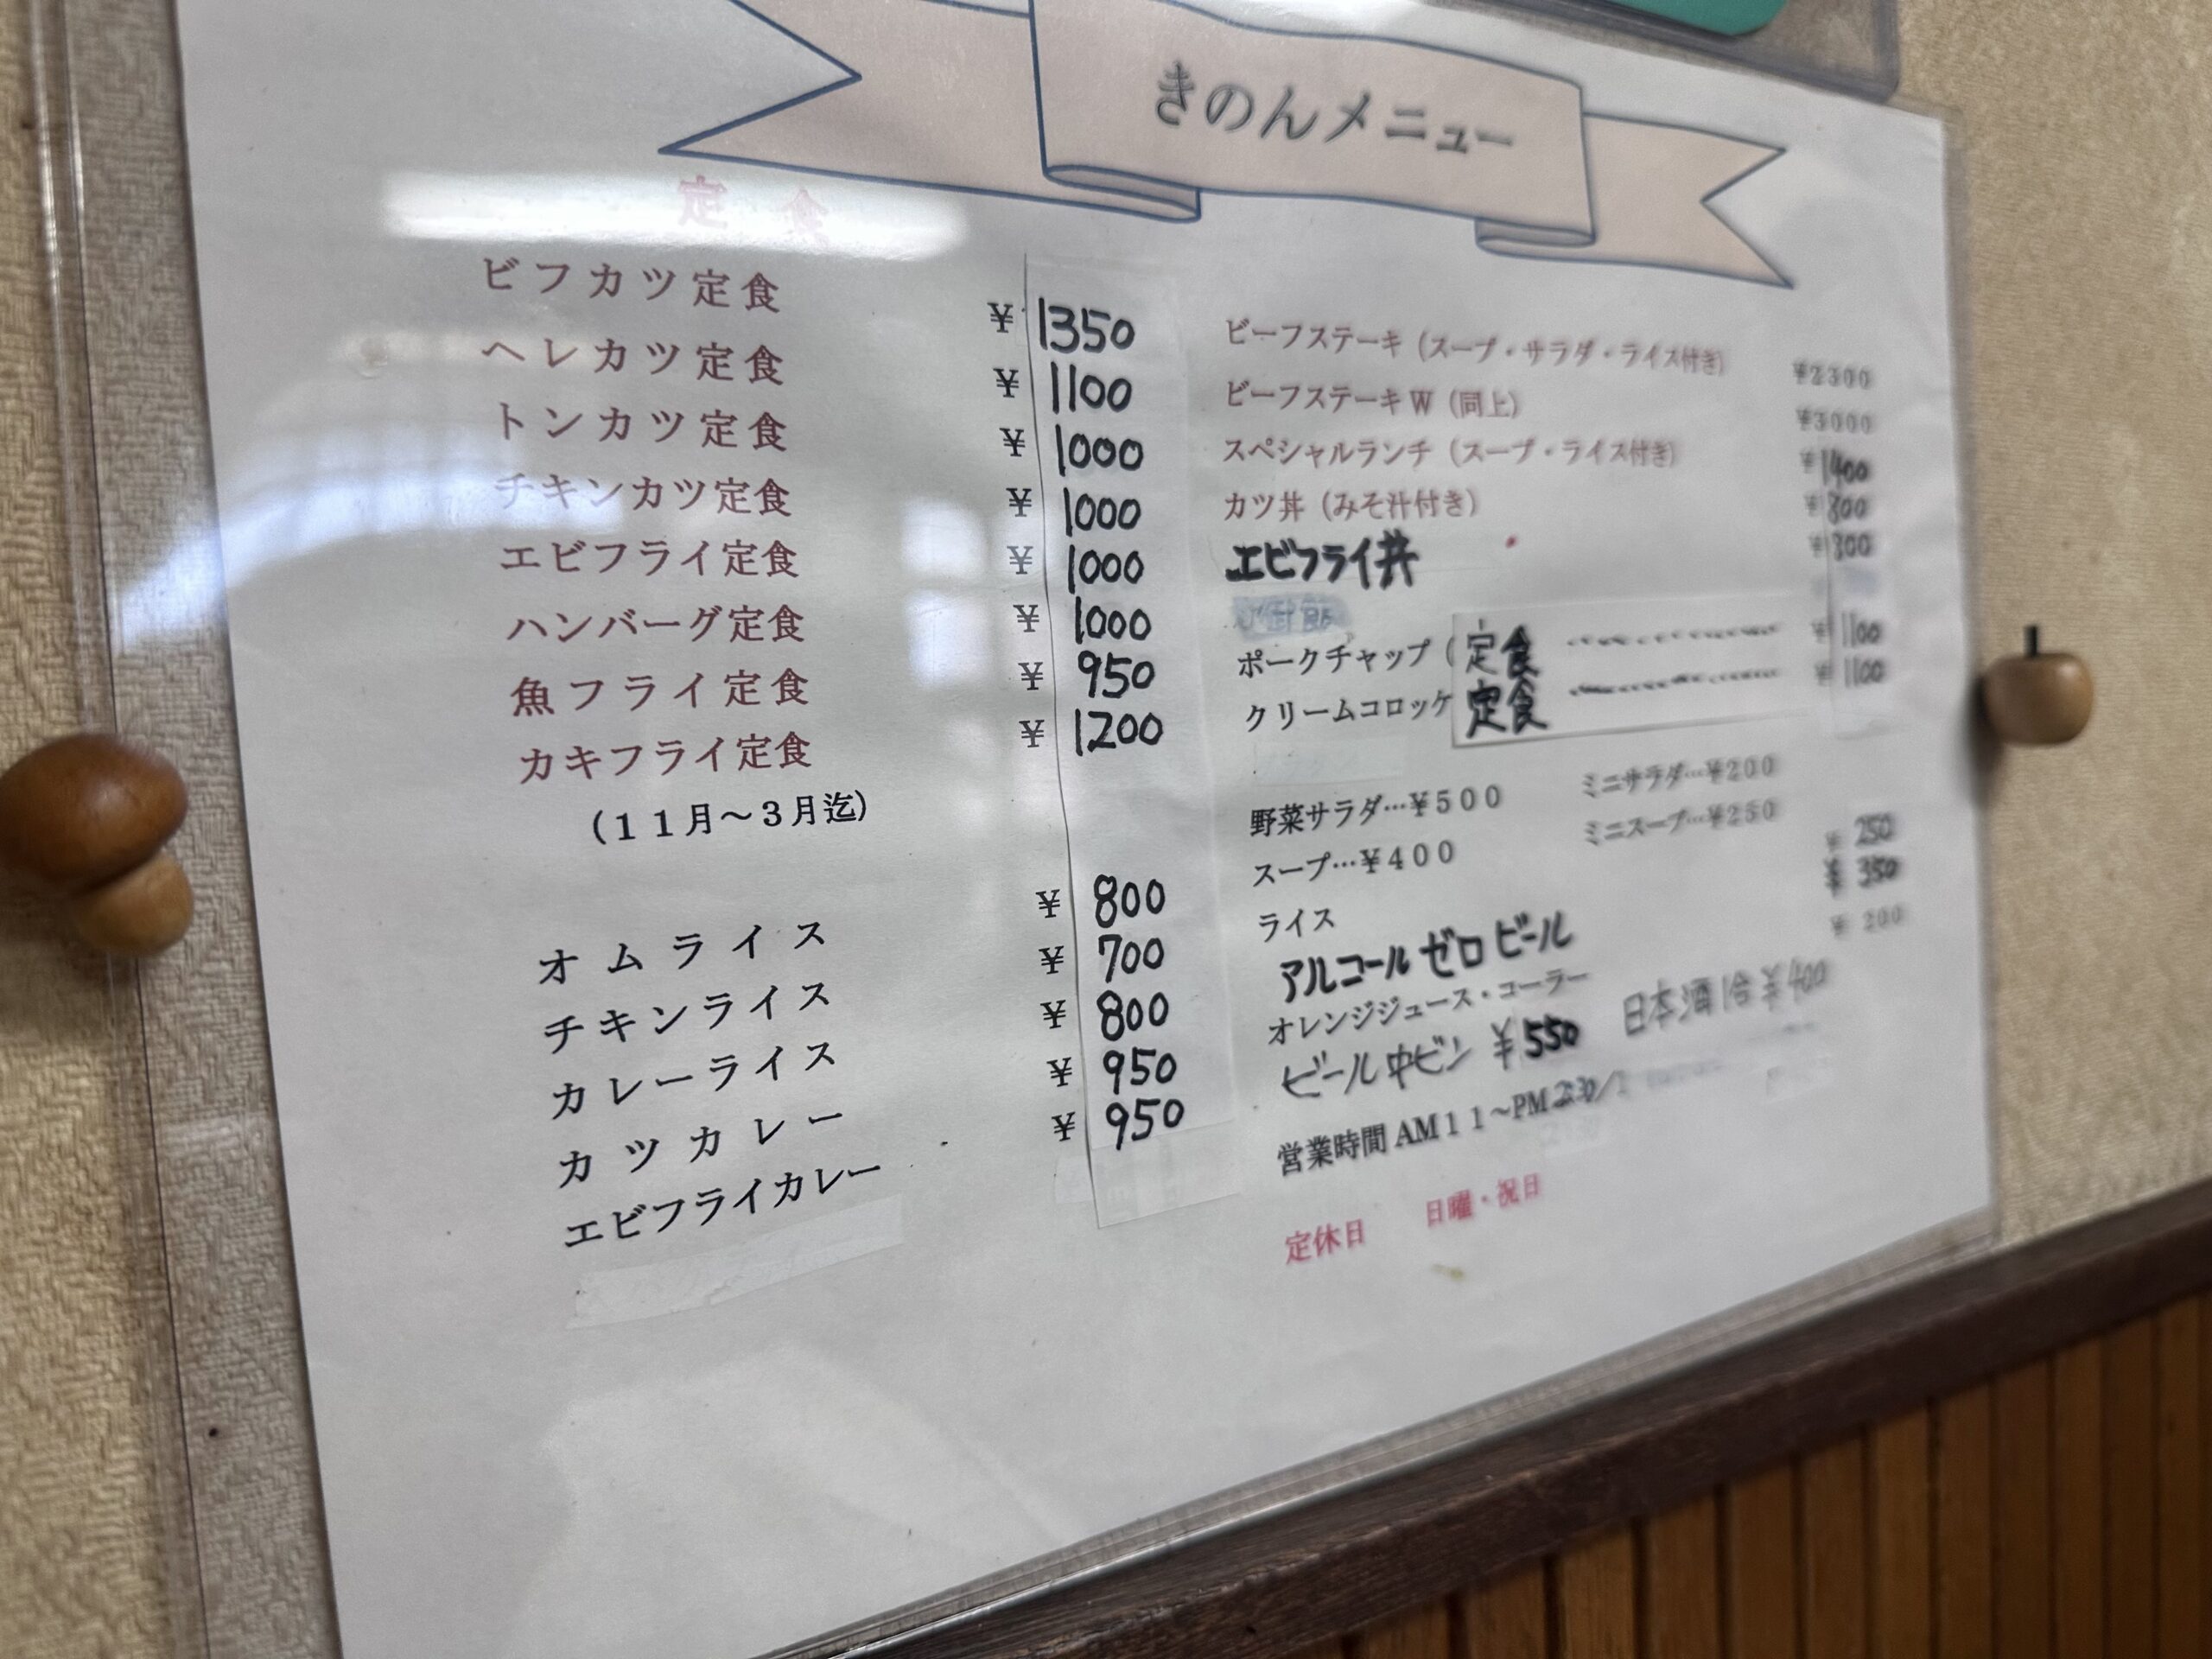 きのんメニュー
定食
ビフカツ定食 ¥1350
ヘレカツ定食 ¥1100
トンカツ定食 ¥1000
チキンカツ定食 ¥1000
エビフライ定食 ¥1000
ハンバーグ定食 ¥1000
魚フライ定食 ¥950
カキフライ定食 ¥1200
(11月〜3月迄)
オムライス ¥800
チキンライス ¥700
カレーライス ¥800
カツカレー ¥950
エビフライカレー ¥950
ビーフステーキ(スープ・サラダ・ライス付き) ¥2300
ビーフステーキW(同上) ¥3000
スペシャルランチ(スープ・ライス付き) ¥1400
カツ丼(みそ汁付き) ¥800
エビフライ丼 ¥800
ポークチャップ(定食 ¥1100
クリームコロッケ定食 ¥1100
野菜サラダ…¥500 ミニサラダ…¥200
スープ…¥400 ミニスープ…¥250
ライス ¥250
アルコールゼロビール ¥350
オレンジジュース・コーラー ¥200
ビール中ビン ¥550 日本酒1合¥400
営業時間 AM11〜PM2:30
定休日 日曜・祝日